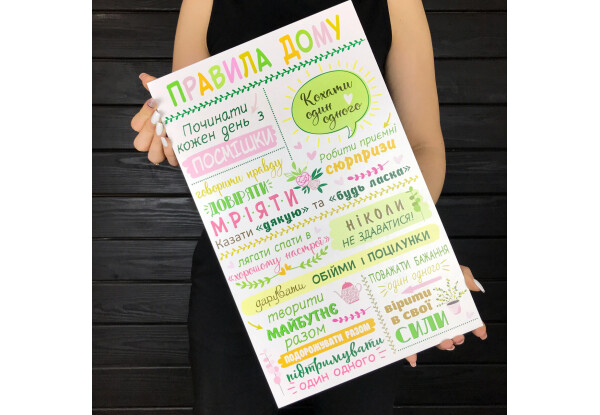 ПРАВИЛА ДОМУ
Починати
кожен день з
ПОСМІШКИ
Кохати
один
одного
говорити правду
ДОВІРЯТИ
МРІЯТИ
Робити приємні
сюрпризи
Казати «дякую» та «будь ласка»
лягати спати в
«хорошому настрої»
НІКОЛИ
НЕ ЗДАВАТИСЯ!
дарувати ОБІЙМИ І ПОЦІЛУНКИ
творити
МАЙБУТНЄ
разом
ПОДОРОЖУВАТИ РАЗОМ
підтримувати
ОДИН ОДНОГО
ПОВАЖАТИ БАЖАННЯ
один одного
вірити
в свої
СИЛИ